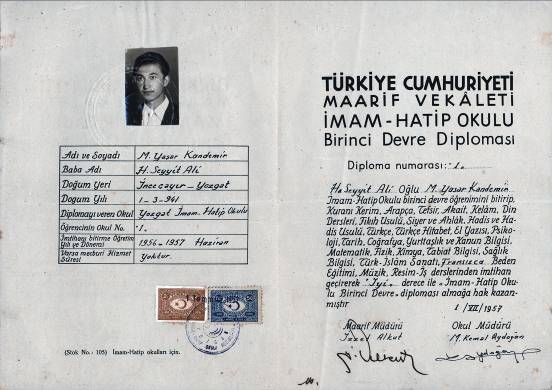 Adı ve Soyadı M. Yaşar Kandemir
Baba Adı H. Seyyit Ali
Doğum Yeri İncecayır - Yozgat
Doğum Yılı 1-3-941
Diplomayı veren Okul Yozgat İmam-Hatip Okulu
Öğrencinin Okul No. 1
İmtihanı bitirme Öğretim Yılı ve Dönemi 1956-1957 Haziran
Varsa mecburi Hizmet Süresi Yoktur.
(Stok No.: 105) İmam-Hatip okulları için.
TÜRKİYE CUMHURİYETİ
MAARİF VEKÂLETİ
İMAM-HATİP OKULU
Birinci Devre Diploması
Diploma numarası: 1.
H. Seyyit Ali Oğlu M. Yaşar Kandemir
İmam-Hatip Okulu birinci devre öğrenimini bitirip,
Kuranı Kerim, Arapça, Tefsir, Akait, Kelâm, Din
Dersleri, Fıkıh Usulü, Siyer ve Ahlâk, Hadis ve Ha-
dis Usulü, Türkçe, Türkçe Hitabet, El Yazısı, Psiko-
loji, Tarih, Coğrafya, Yurttaşlık ve Kanun Bilgisi,
Matematik, Fizik, Kimya, Tabiat Bilgisi, Sağlık
Bilgisi, Türk-İslâm Sanatı, Fransızca Beden
Eğitimi, Müzik, Resim-İş derslerinden imtihan
geçirerek "İyi" derece ile «İmam-Hatip Oku-
lu Birinci Devre» diploması almağa hak kazan-
mıştır
1/VII/1957
Maarif Müdürü Okul Müdürü
İzzet Alkut M. Kemal Aydoğan